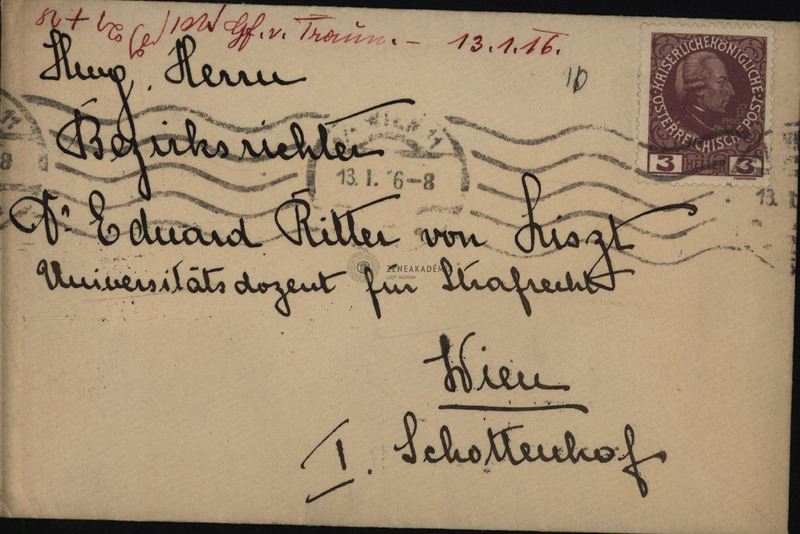 Gf. v. Traun. – 13.1.16.
Herrn
Bezirksrichter
Dr Eduard Ritter von Liszt
Universitätsdozent für Strafrecht
Wien
I. Schottenhof
KAISERLICHEKÖNIGLICHE
ÖSTERREICHISCHE POST
3 HELLER 3
WIEN 11
13. I. 16-8
11
8
13.
ZENEAKADÉMIA
LISZT MÚZEUM